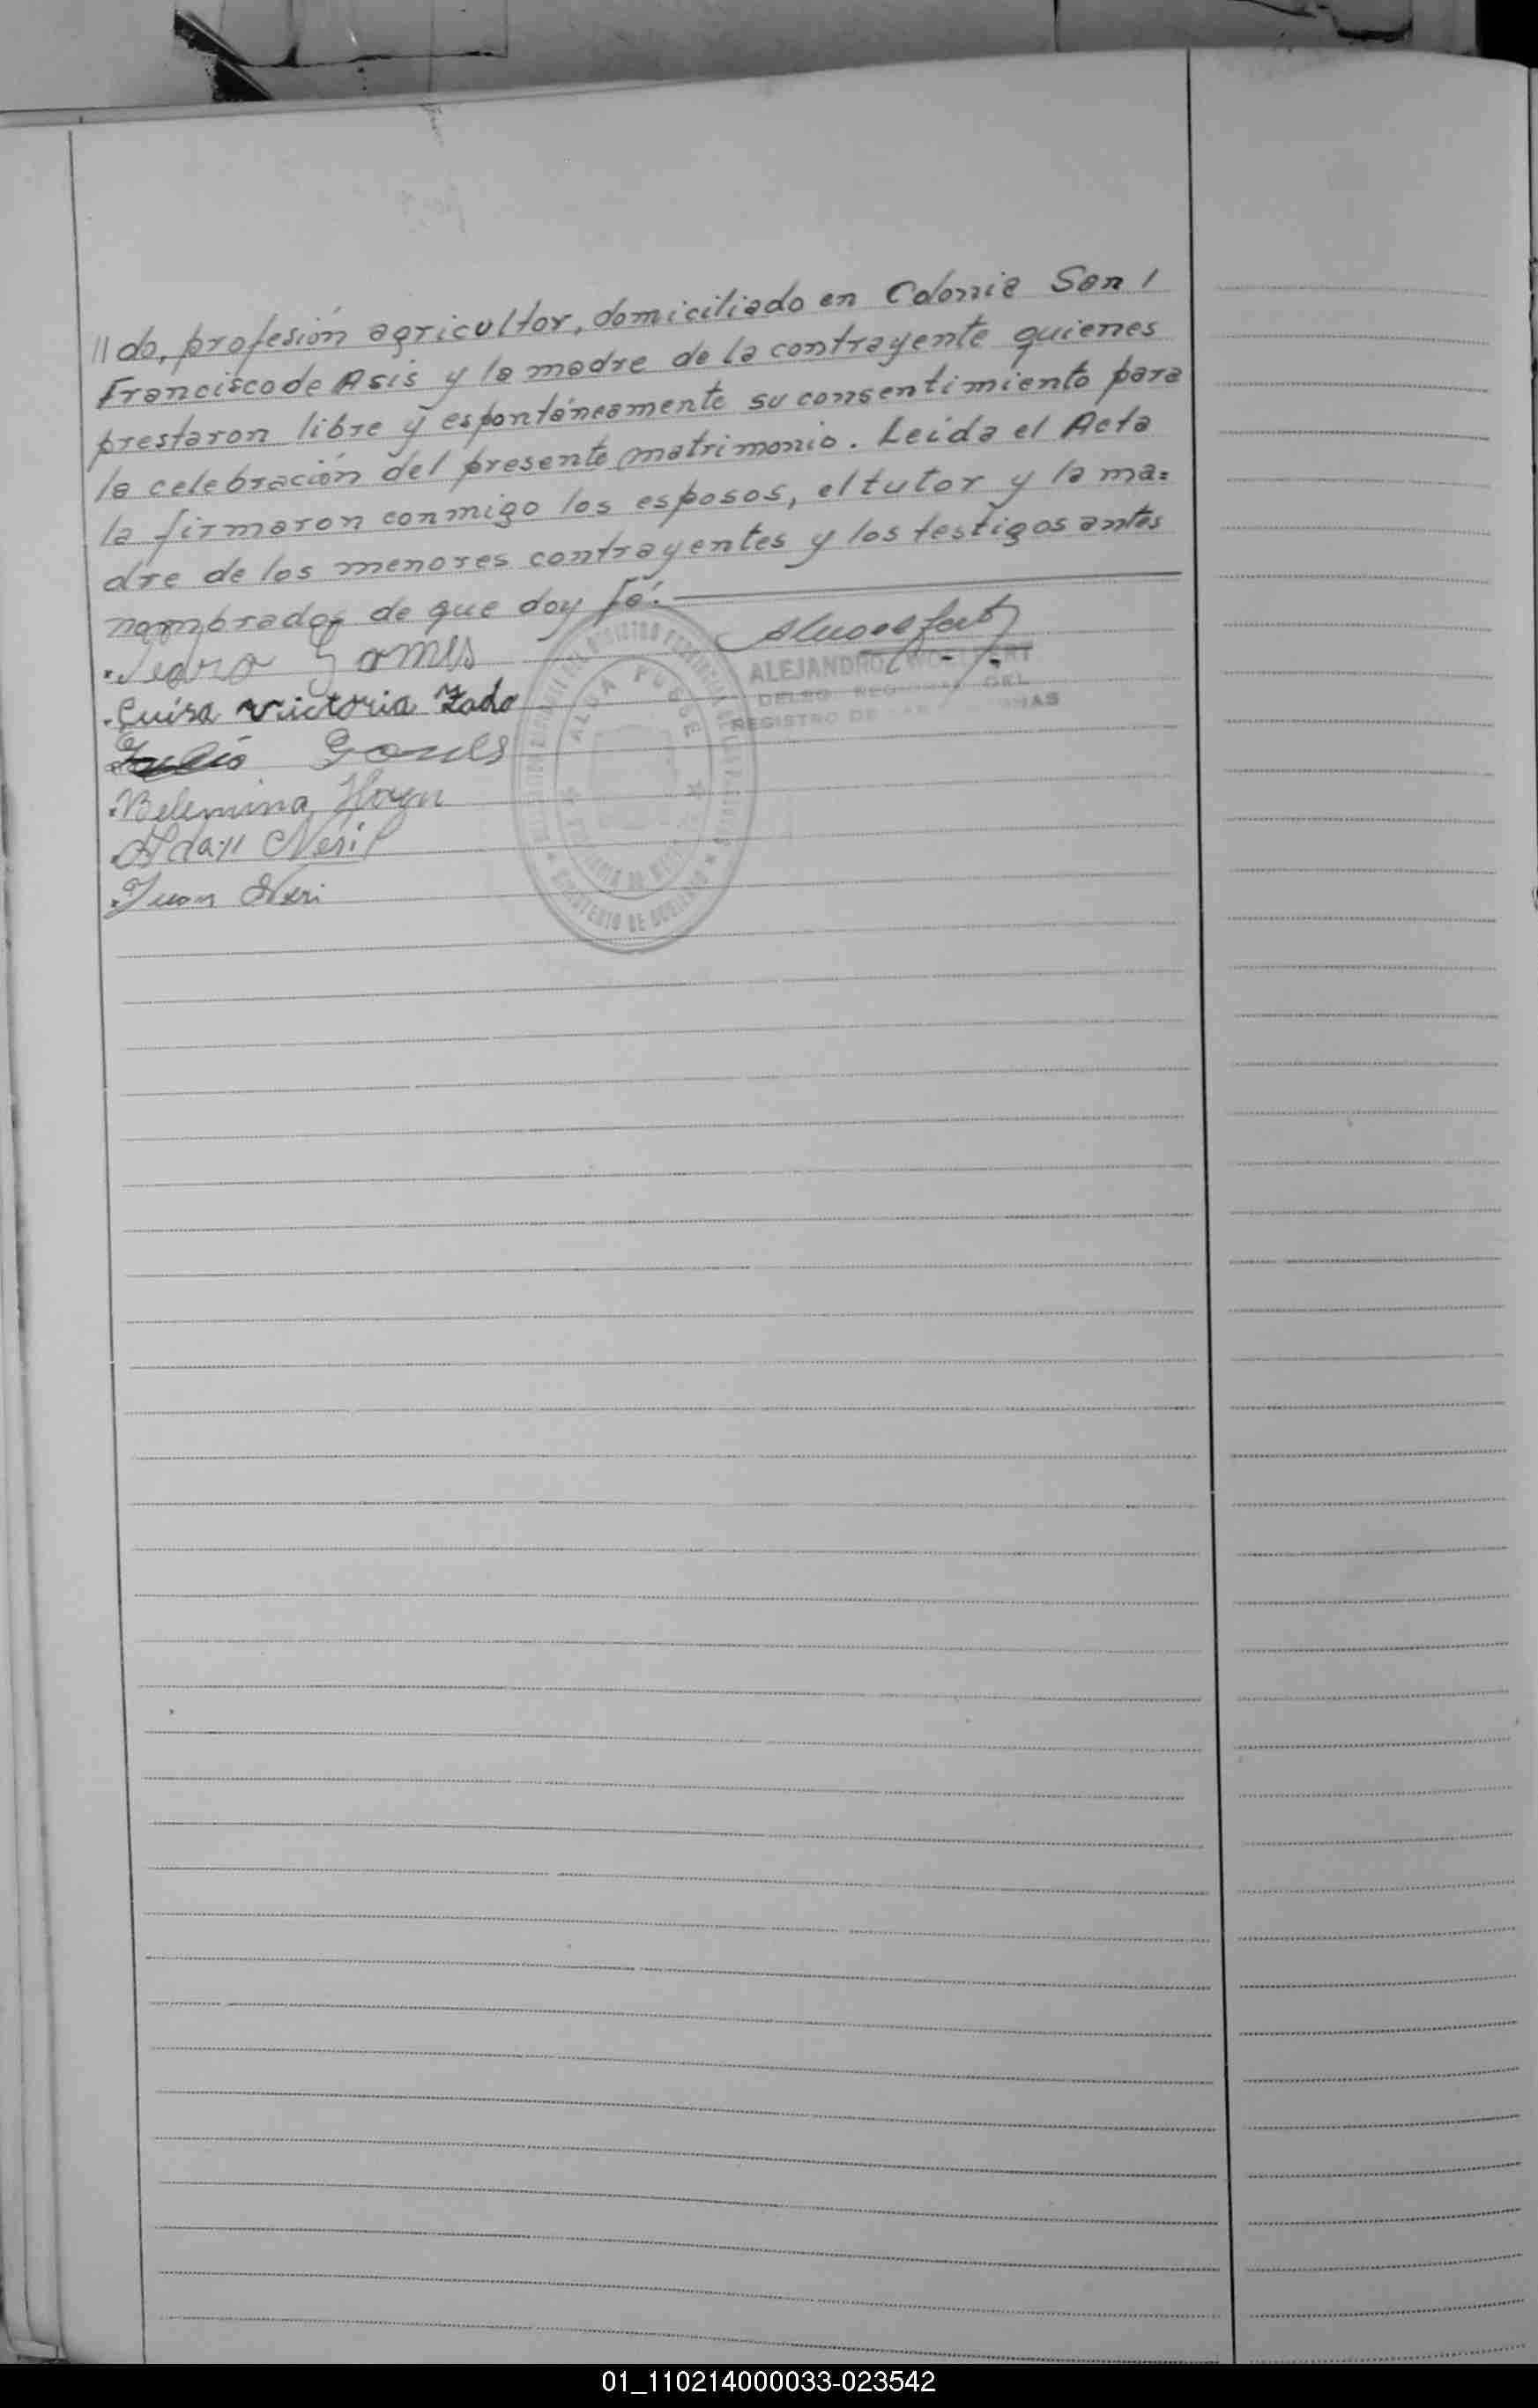 //do, profesión agricultor, domiciliado en Colonia San /
Francisco de Asis y la madre de la contrayente quienes
prestaron libre y espontáneamente su consentimiento para
la celebración del presente matrimonio. Leida el Acta
la firmaron conmigo los esposos, el tutor y la ma=
dre de los menores contrayentes y los testigos antes
nombrados de que doy fé.
Pedro Gomes
ALEJANDRO
REGISTRO DE LAS
Luisa Victoria
Julio Gomes
Belermina
Juan Neri
ALBA POSSE
MINISTERIO DE GOBIERNO
01_110214000033-023542